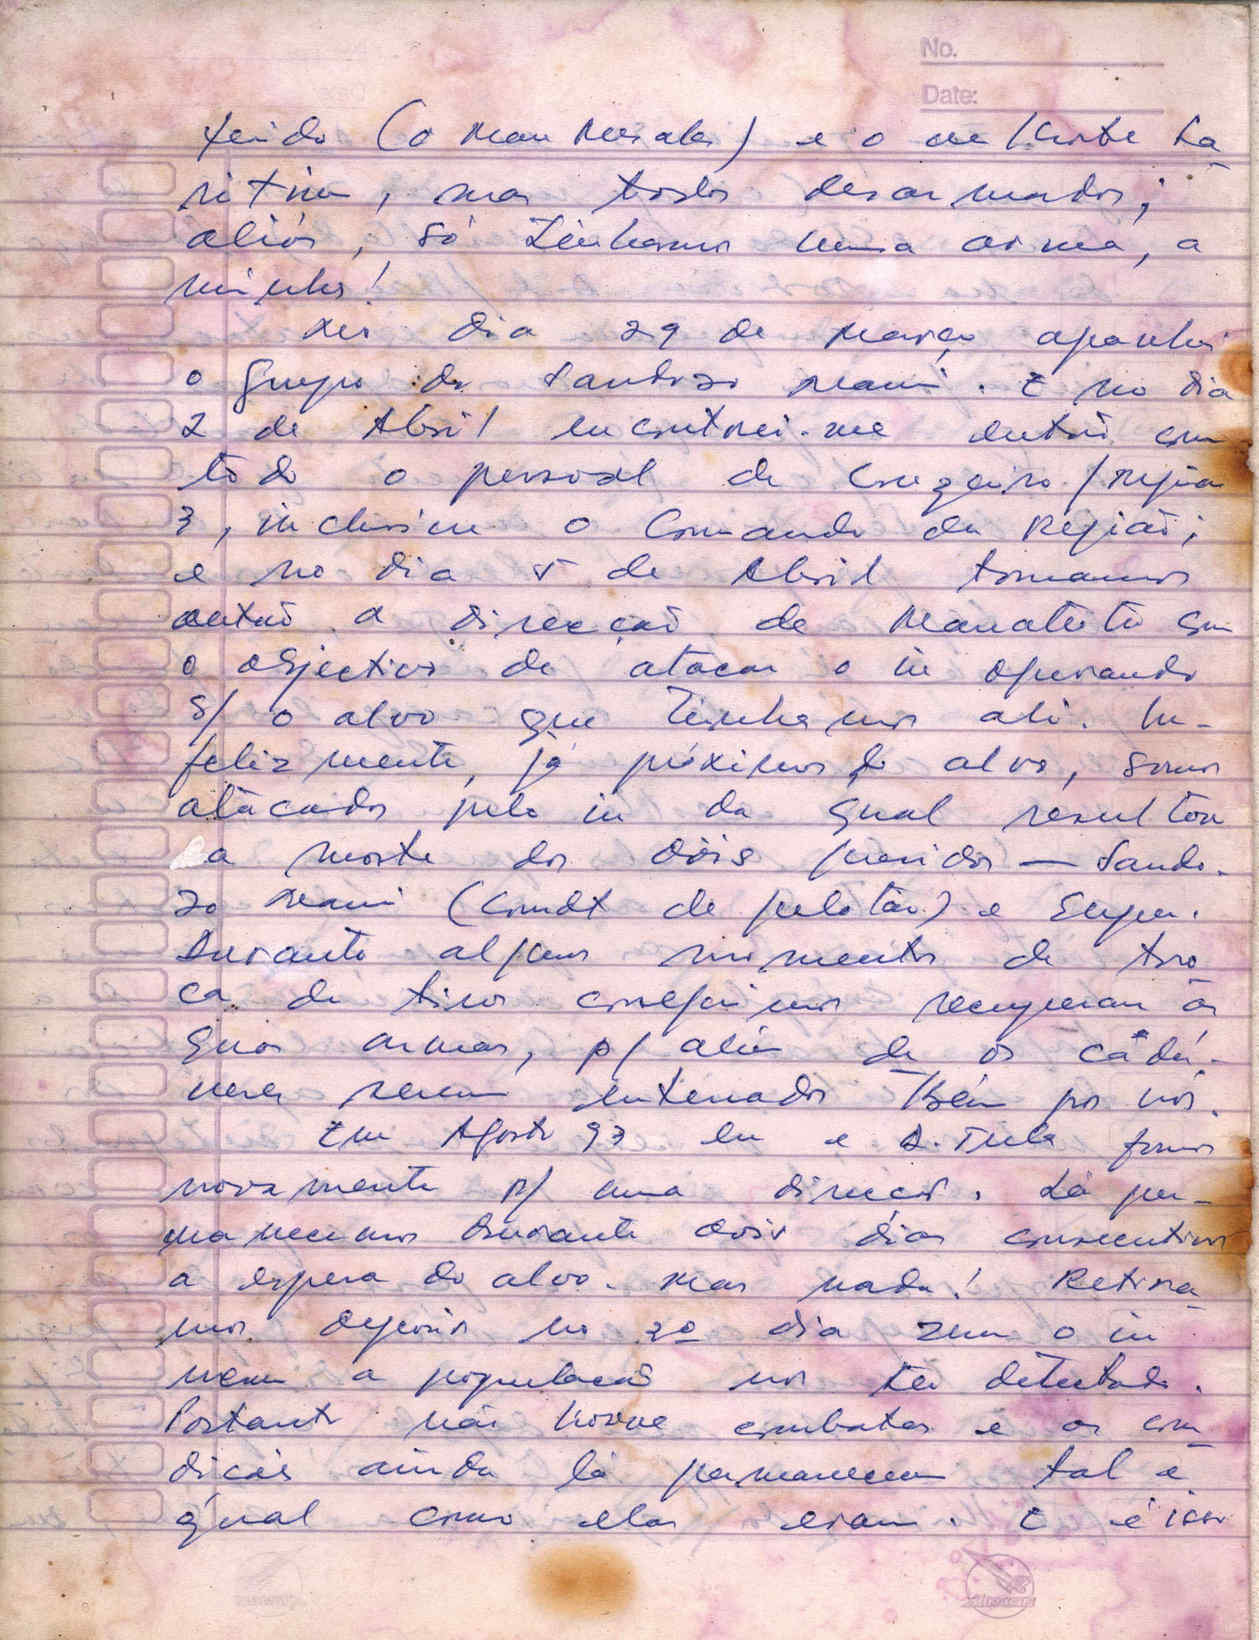 No.
Date:
ferido (o Mau Meralas) e o
ritim, mas todos desarmados;
aliás, só tínhamos uma arma, a
minha!
No dia 29 de Março apanhei
o Grupo do Sandozo Maui. E no dia
2 de Abril encontrei-me então com
todo o pessoal de Cruzeiro/Região
3, inclusive o Comando da Região;
e no dia 5 de Abril tomamos
então a direcção de Manatuto com
o objectivo de atacar o in operando
s/ o alvo que tínhamos ali. In-
felizmente, já próximos do alvo, somos
atacados pelo in da qual resultou
a morte dos dois queridos — Sando-
zo Maui (Comdt de pelotão) e
Durante alguns momentos de tro
ca de tiros conseguimos recuperar as
suas armas, p/ além de os cadá-
veres serem enterrados tbém por nós.
Em Agosto 93 eu e D. Tula fomos
novamente p/ uma direcção. Lá per-
manecemos durante dois dias consecutivos
a espera do alvo. Mas nada! Retira
mos depois no 3º dia sem o in
nem a população nos ter detectado.
Portanto não houve combates e as con
dições ainda lá permanecem tal e
qual como elas eram. E é isso